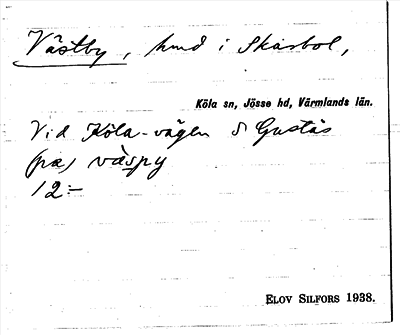 Västby, hmd i Skärbol,
Köla sn, Jösse hd, Värmlands län.
Vid Köla-vägen S Gustås
(pæ) vàspy
12:-
ELOV SILFORS 1938.